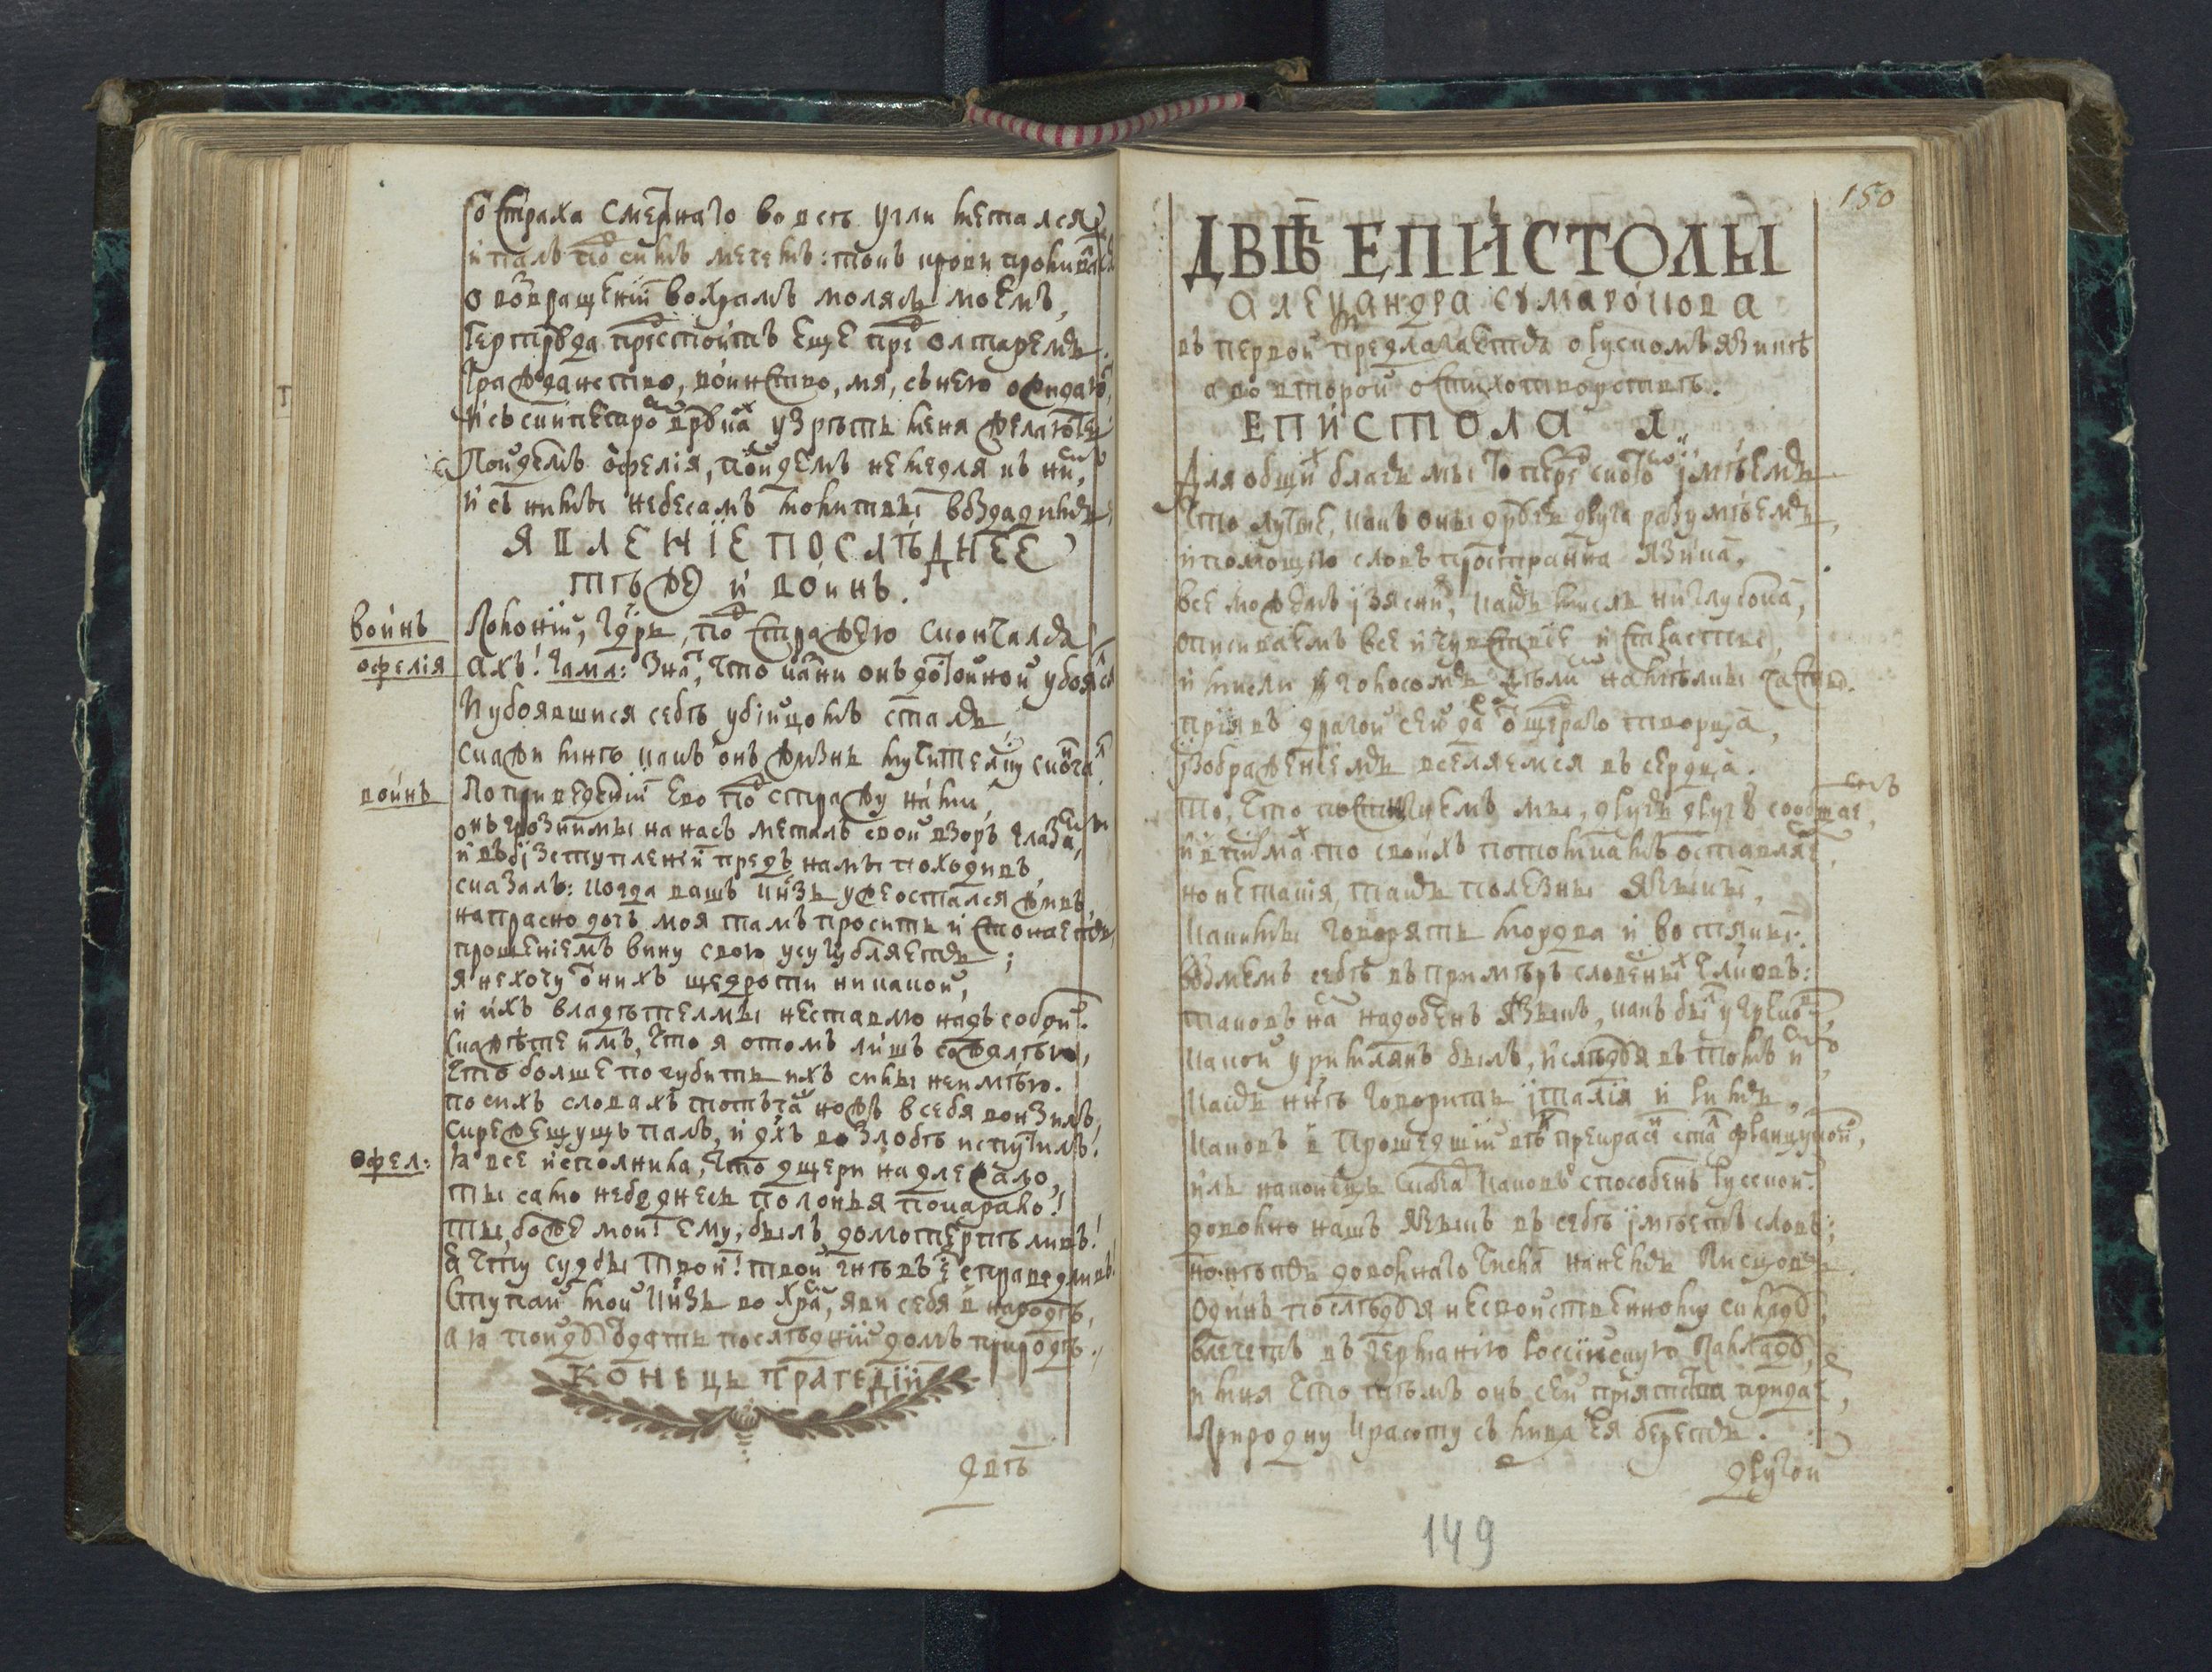 со страха смертнаго во всѣ углы метался,
и палъ подъ симъ мечемъ: токъ крови проливался
о возвращенїи во храмъ молясь моемъ,
Гертруда предстоитъ еще пред олтаремъ.
Гражданство, воинство, мя, съ нею ожидаютъ,
и съ скипетромъ в рукахъ узрѣть меня желаютъ
Пойдемъ офелїя, пойдемъ немедля къ нимъ,
и съ ними небесамъ молитвы воздадимъ,
ЯВЛЕНЇЕ ПОСЛѢДНЕЕ
тѣже и воинъ.
воинъ Полонїй, Гдрь, под стражею скончался
офелїя Ахъ! гамл: Знать, что казни онъ достойной убоялся
И убоявшися себѣ убїйцомъ сталъ,
скажи мнѣ какъ онъ жизнь мучителску скончалъ.
воинъ По приведенїи Его под стражу нами,
онъ грозными на насъ металъ свой взоръ глазами,
и въ їзступленїи предъ нами походивъ,
сказалъ: когда вашъ кнзь уже остался живъ,
напрасно дочь моя тамъ проситъ и стонаетъ,
прошенїемъ вину свою усугубляетъ;
я не хочу от нихъ щедроты никакой,
и ихъ владѣтелми не ставлю надъ собой.
скажите имъ, что я о томъ лишъ сожалѣю,
что болше погубить ихъ силы не имѣю.
по сихъ словахъ тотъчасъ ножъ в себя вонзилъ,
скрежещущъ палъ, и дхъ во злобѣ испустилъ.
офел: Я все исполнила, что дщери надлежало,
ты само небо днесь полонья покарало!
ты, боже мой! ему, былъ долготерпѣливъ!
Я чту судбы твои! твой гнѣвъ есть справедливъ!
Ступай мой кнзь во храмъ, яви себя в народѣ,
а я пойду отдать послѣднїй долгъ природѣ.
КОНЕЦЪ ТРАГЕДЇИ
двѣ
150
ДВѢ ЕПИСТОЛЫ
АЛЕѮАНДРА СУМАРОКОВА
въ первой предлагается о рускомъ языкѣ
а во второй о стихотворствѣ.
ЕПИСТОЛА А
Для общихъ благъ мы то перед скотомъ їмѣемъ
Что лутче, какъ они другъ друга разумѣемъ,
и помощїю словъ пространна языка,
все можемъ їзяснить, какъ мысль ни глубока,
описываемъ все и чувствїе и страсти,
и мысли голосомъ дѣлимъ на мѣлки части.
прїявъ драгой сей даръ от щедраго творца,
їзображенїемъ вселяемся въ сердца.
то, что постигнемъ мы, другъ другу сообщаемъ,
и в писмахъ то своихъ потомкамъ оставляемъ,
но не такїя, такъ полезны языки,
какими говорятъ мордва и вотяки.
возмемъ себѣ въ примѣръ словесныхъ члвковъ:
таковъ намъ надобенъ языкъ, какъ былъ у грековъ,
какой у римлянъ былъ, и слѣдуя въ томъ имъ,
какъ ннѣ говоритъ їталїя и римъ,
каковъ в прошедшїй вѣкъ прекрасенъ сталъ францускои,
иль наконецъ сказать каковъ способенъ русской.
доволно нашъ языкъ въ себѣ їмѣетъ словъ;
но нѣтъ доволнаго числа на немъ писцовъ.
Одинъ послѣдуя несвойственному складу,
влечетъ въ германїю россїйскую палладу,
и мня что тѣмъ онъ ей прїятства придаетъ,
природну красоту съ лица ея беретъ.
другой
149